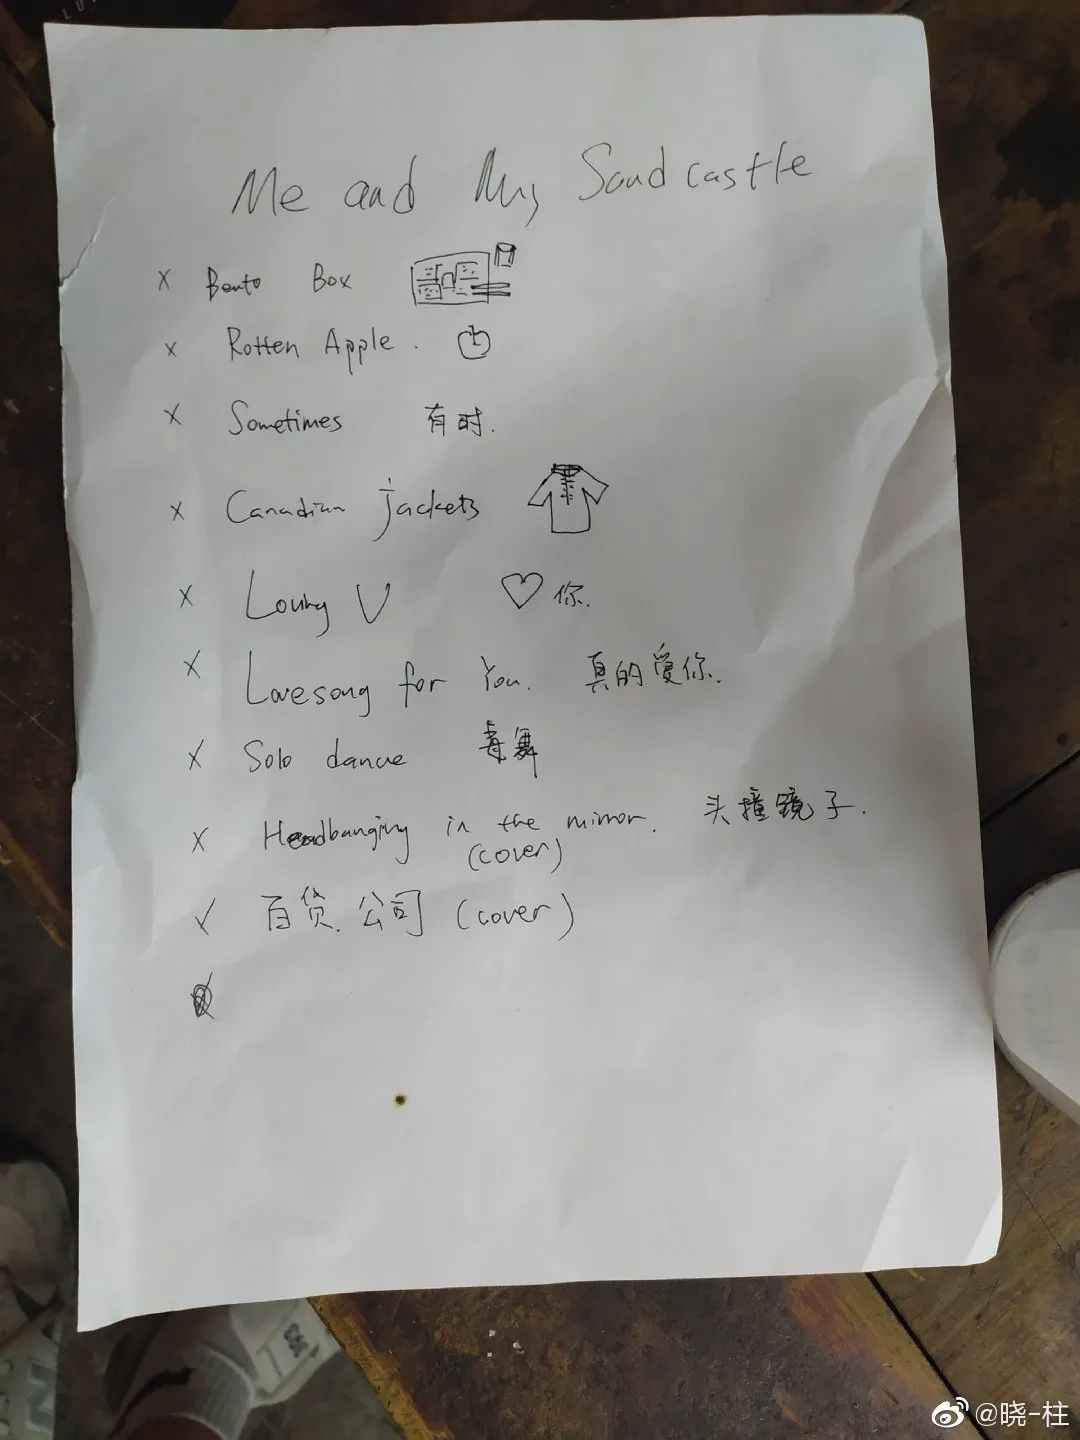 Me and My Sandcastle
x Bento Box
x Rotten Apple.
x Sometimes 有时.
x Canadian jackets
x Loving U ♡你.
x Lovesong for You. 真的爱你.
x Solo dance 毒舞
x Headbanging in the mirror. 头撞镜子.
(cover)
✓ 百货公司 (cover)
@晓-柱